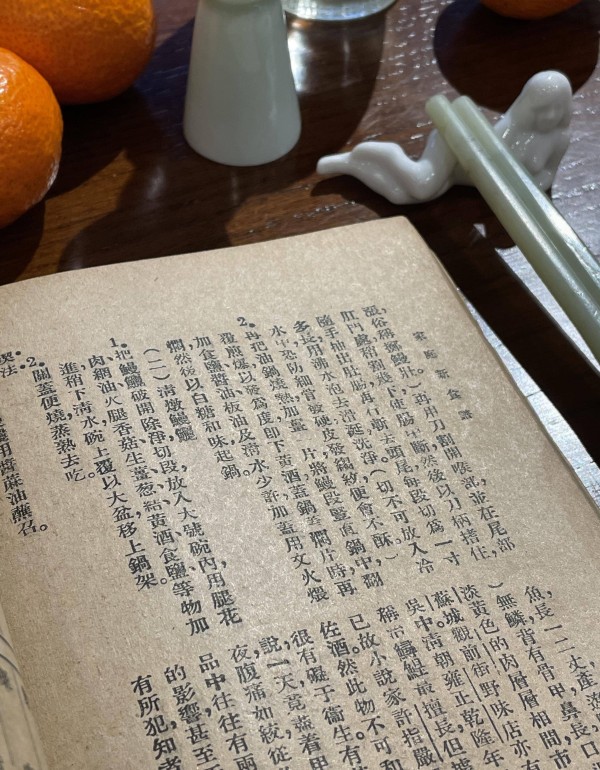 家庭新食譜
涎,俗稱殺鰻肚。)再用刀劃開喉部,並在尾部
肛門處,稍劃幾下,使腸中斷,然後以刀柄搭住,
隨手抽出肚腸,再行斬去頭尾,每段切為一寸
多長,用沸水泡去滑涎洗淨。(切不可放入冷
水中,恐防細骨驟硬,皮發縐紋,便會不酥,)
2.再把油鍋燒熱,加薑
片,將鰻段豎直鍋中,翻
覆煎爆,以發為度,即下黃酒蓋鍋,燜片時,再
加食鹽,醬油,板油,及清水少許,加蓋用文火煨
燜,然後以白糖和味起鍋。
(二)清燉鰻鱺
1.把鰻鱺破開,除淨切段,放入大號碗內,用腿花
肉,網油,火腿,香菇,生薑,葱結,黃酒,食鹽,等物加
進,稍下清水,碗上覆以大盆,移上鍋架。
2.關蓋便燒,蒸熟去吃。
用醬蔴油蘸召。
魚,長一二丈,產
)無鱗,背有骨甲,鼻長,口
淡黃色的肉層層相間,市
蘇城觀前街野味店亦有
吳中,清朝雍正,乾隆年
稱治鱘鰉最擅長,但據
已故小說家許指嚴
佐酒。然此物不可和
很有礙于衞生。有
說,一天,竟蘸着
夜,腹痛如絞,從
品中往往有兩
的影響,甚至
有所犯,知者